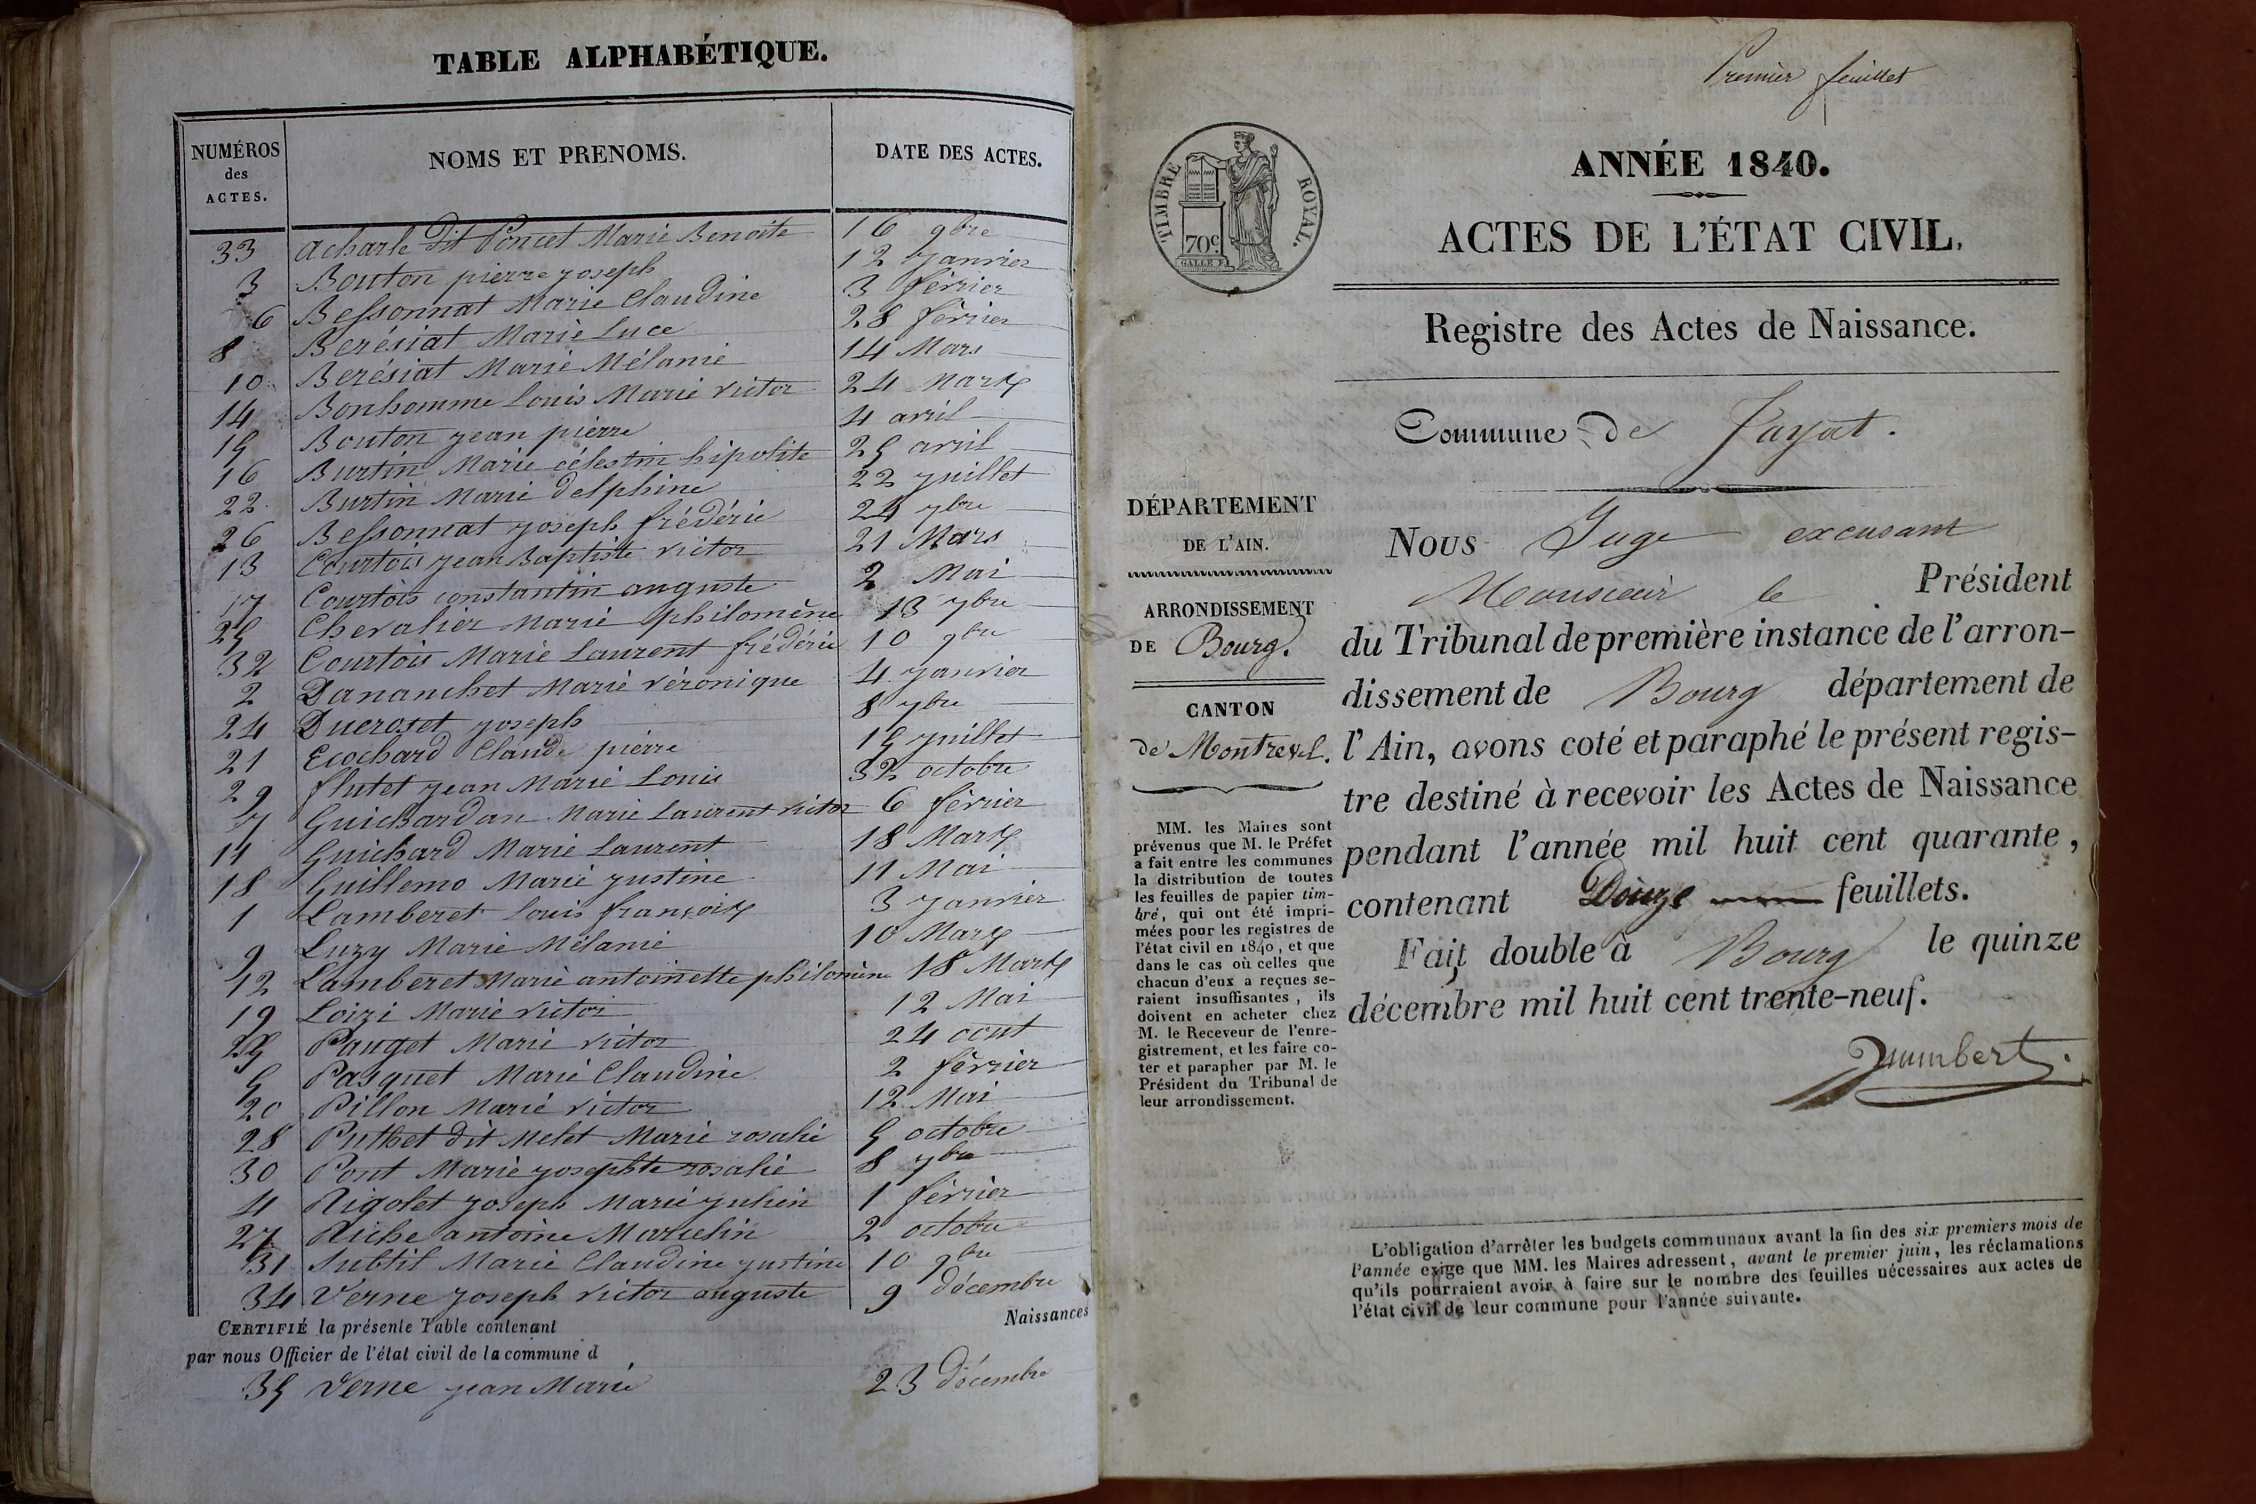 TABLE ALPHABÉTIQUE.
NUMÉROS des ACTES. NOMS ET PRENOMS. DATE DES ACTES.
33 acharle Dit Poncet Marie Benoite 16 9bre
3 Bouton pierre joseph 12 janvier
6 Bessonnat Marie Claudine 3 févrièr
8 Berésiat Marie Luce 28 févrièr
10 Berésiat Marie Mélanie 14 Mars
14 Bonhomme Louis Marie victor 24 Mars
15 Bouton jean pierre 4 avril
16 Burtin Marie célestin hipolite 25 avril
22 Burtin Marie delphine 22 juillet
26 Bessonnat joseph frédéric 24 7bre
13 Courtois jean Baptiste victor 21 Mars
17 Courtois constantin auguste 2 Mai
25 Chevalier Marie philomène 13 7bre
32 Courtois Marie Laurent frédéric 10 9bre
2 Dananchet Marie véronique 4 janvier
24 Ducrotet joseph 8 7bre
21 Ecochard Claude pierre 15 juillet
29 flutet jean Marie Louis octobre
7 Guichardan Marie Laurent victor 6 févrièr
11 Guichard Marie Laurent 18 Mars
18 Guillemo Marie justine 11 Mai
1 Lamberet Louis françois 3 janvier
9 Luzy Marie Mélanie 10 Mars
12 Lamberet Marie antoinette philomène 18 Mars
19 Loizi Marie victor 12 Mai
Pauget Marie victor 24 oout
5 Pasquet Marie Claudine 2 févrièr
20 Pillon Marie victor 12 Mai
28 Puthet dit Melet Marie rosalie 5 octobre
30 Pont Marie josephte rosalie 8 7bre
4 Rigolet joseph Marie julien 1 févrièr
27 Riche antoine Marcelin 2 octobre
31 Subtil Marie Claudine justine 10 9bre
34 Verne joseph victor auguste 9 décembre
CERTIFIÉ la présente Table contenant Naissances
par nous Officier de l'état civil de la commune d
35 Verne jean Marie 23 décembre
Premier feuillet
TIMBRE ROYAL.
70c
GALLE F.
ANNÉE 1840.
ACTES DE L'ÉTAT CIVIL.
Registre des Actes de Naissance.
Commune de Jayat.
DÉPARTEMENT
DE L'AIN.
ARRONDISSEMENT
DE Bourg.
CANTON
de Montrevel.
MM. les Maires sont
prévenus que M. le Préfet
a fait entre les communes
la distribution de toutes
les feuilles de papier tim-
bré, qui ont été impri-
mées pour les registres de
l'état civil en 1840, et que
dans le cas où celles que
chacun d'eux a reçues se-
raient insuffisantes, ils
doivent en acheter chez
M. le Receveur de l'enre-
gistrement, et les faire co-
ter et parapher par M. le
Président du Tribunal de
leur arrondissement.
Nous Juge excusant
Monsieur le Président
du Tribunal de première instance de l'arron-
dissement de Bourg département de
l'Ain, avons coté et paraphé le présent regis-
tre destiné à recevoir les Actes de Naissance
pendant l'année mil huit cent quarante,
contenant Douze feuillets.
Fait double à Bourg le quinze
décembre mil huit cent trente-neuf.
L'obligation d'arrêter les budgets communaux avant la fin des six premiers mois de
l'année exige que MM. les Maires adressent, avant le premier juin, les réclamations
qu'ils pourraient avoir à faire sur le nombre des feuilles nécessaires aux actes de
l'état civil de leur commune pour l'année suivante.